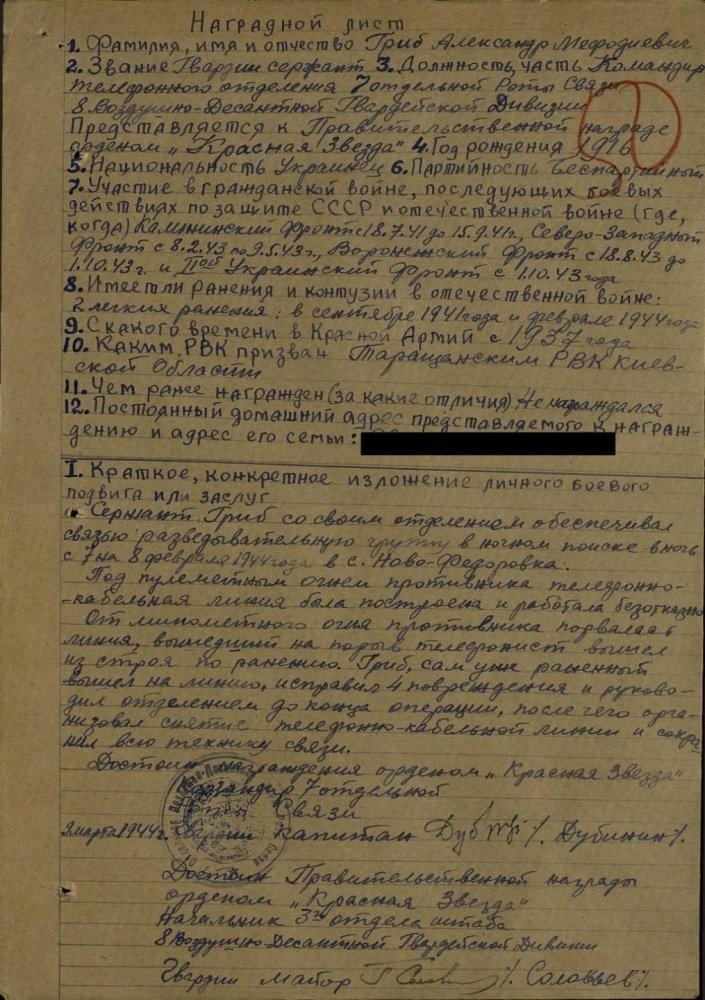 Наградной лист
1. Фамилия, имя и отчество Гриб Александр Мефодиевич
2. Звание Гвардии сержант 3. Должность, часть Командир
телефонного отделения 7 отдельной Роты Связи
8 Воздушно-Десантной Гвардейской Дивизии
Представляется к Правительственной награде
орденом „Красная Звезда" 4. Год рождения 1916
5. Национальность Украинец 6. Партийность беспартийный
7. Участие в гражданской войне, последующих боевых
действиях по защите СССР и отечественной войне (где,
когда) Калининский фронт с 18.7.41 до 15.9.41г., Северо-Западный
фронт с 8.2.43 по 9.5.43г., Воронежский фронт с 18.8.43 до
1.10.43г. и IIой Украинский фронт с 1.10.43 года
8. Имеет ли ранения и контузии в отечественной войне:
2 легких ранения: в сентябре 1941 года и феврале 1944 года
9. С какого времени в Красной Армий с 1937 года
10. Каким РВК призван Таращанским РВК Киев-
ской Области
11. Чем ранее награжден (за какие отличия) Не награждался
12. Постоянный домашний адрес представляемого к награж-
дению и адрес его семьи:
I. Краткое, конкретное изложение личного боевого
подвига или заслуг
Сержант Гриб со своим отделением обеспечивал
связью разведывательную группу в ночном поиске в ночь
с 7 на 8 февраля 1944 года в с. Ново-Федоровка.
Под пулеметным огнем противника телефонно-
-кабельная линия была построена и работала безотказно
От минометного огня противника порвалась
линия, вышедший на порыв телефонист вышел
из строя по ранению. Гриб, сам уже раненный
вышел на линию, исправил 4 повреждения и руково-
дил отделением до конца операции, после чего орга-
низовал снятие телефонно-кабельной линии и сохра-
нил всю технику связи.
Достоин награждения орденом „Красная Звезда"
Командир 7 отдельной
Роты Связи
9 марта 1944г. Гвардии капитан /. Дубинин /.
Достоин Правительственной награды
орденом „Красная Звезда"
Начальник 3го отдела штаба
8 Воздушно-Десантной Гвардейской Дивизии
Гвардии майор /. Соловьев /.